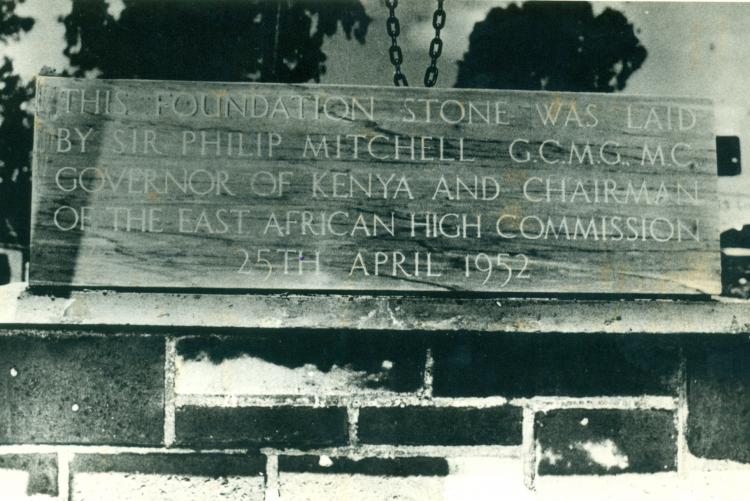 THIS FOUNDATION STONE WAS LAID
BY SIR PHILIP MITCHELL G.C.M.G., M.C.
GOVERNOR OF KENYA AND CHAIRMAN
OF THE EAST AFRICAN HIGH COMMISSION
25TH APRIL 1952